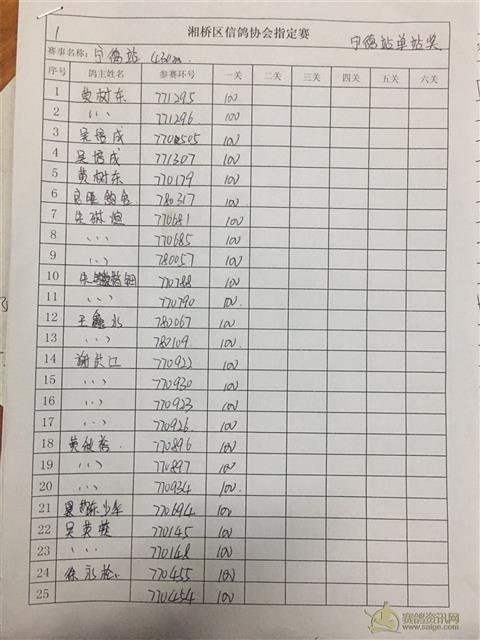 1
湘桥区信鸽协会指定赛
宁德站单站奖
赛事名称: 宁德站 430km
序号 鸽主姓名 参赛环号 一关 二关 三关 四关 五关 六关
1 黄树东 771295 100
2 〃 771296 100
3 吴培成 770505 100
4 吴培成 771307 100
5 黄树东 770179 100
6 780317 100
7 朱琳煊 770681 100
8 〃 770685 100
9 〃 780057 100
10 朱 770788 100
11 〃 770790 100
12 王鑫水 780067 100
13 〃 780109 100
14 谢洪江 770922 100
15 〃 770930 100
16 〃 770923 100
17 〃 770926 100
18 黄 770896 100
19 〃 770897 100
20 〃 770934 100
21 陈少年 770694 100
22 吴英 770145 100
23 〃 770148 100
24 徐永松 770455 100
25 770454 100
赛鸽资讯网
www.saige.com